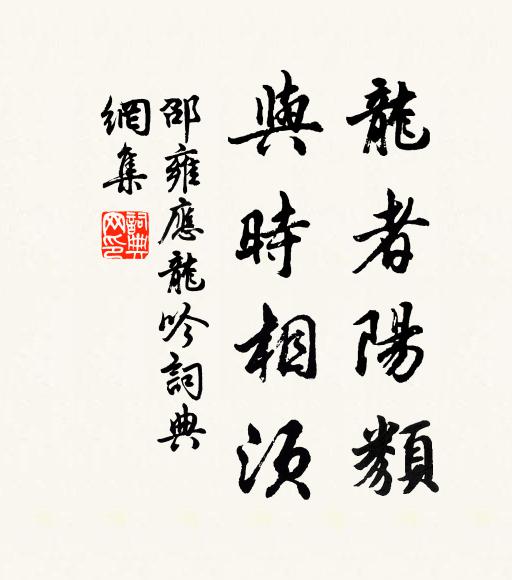 龍者陽類
與時相須
邵雍應龍吟詞典
網集
詞典网印